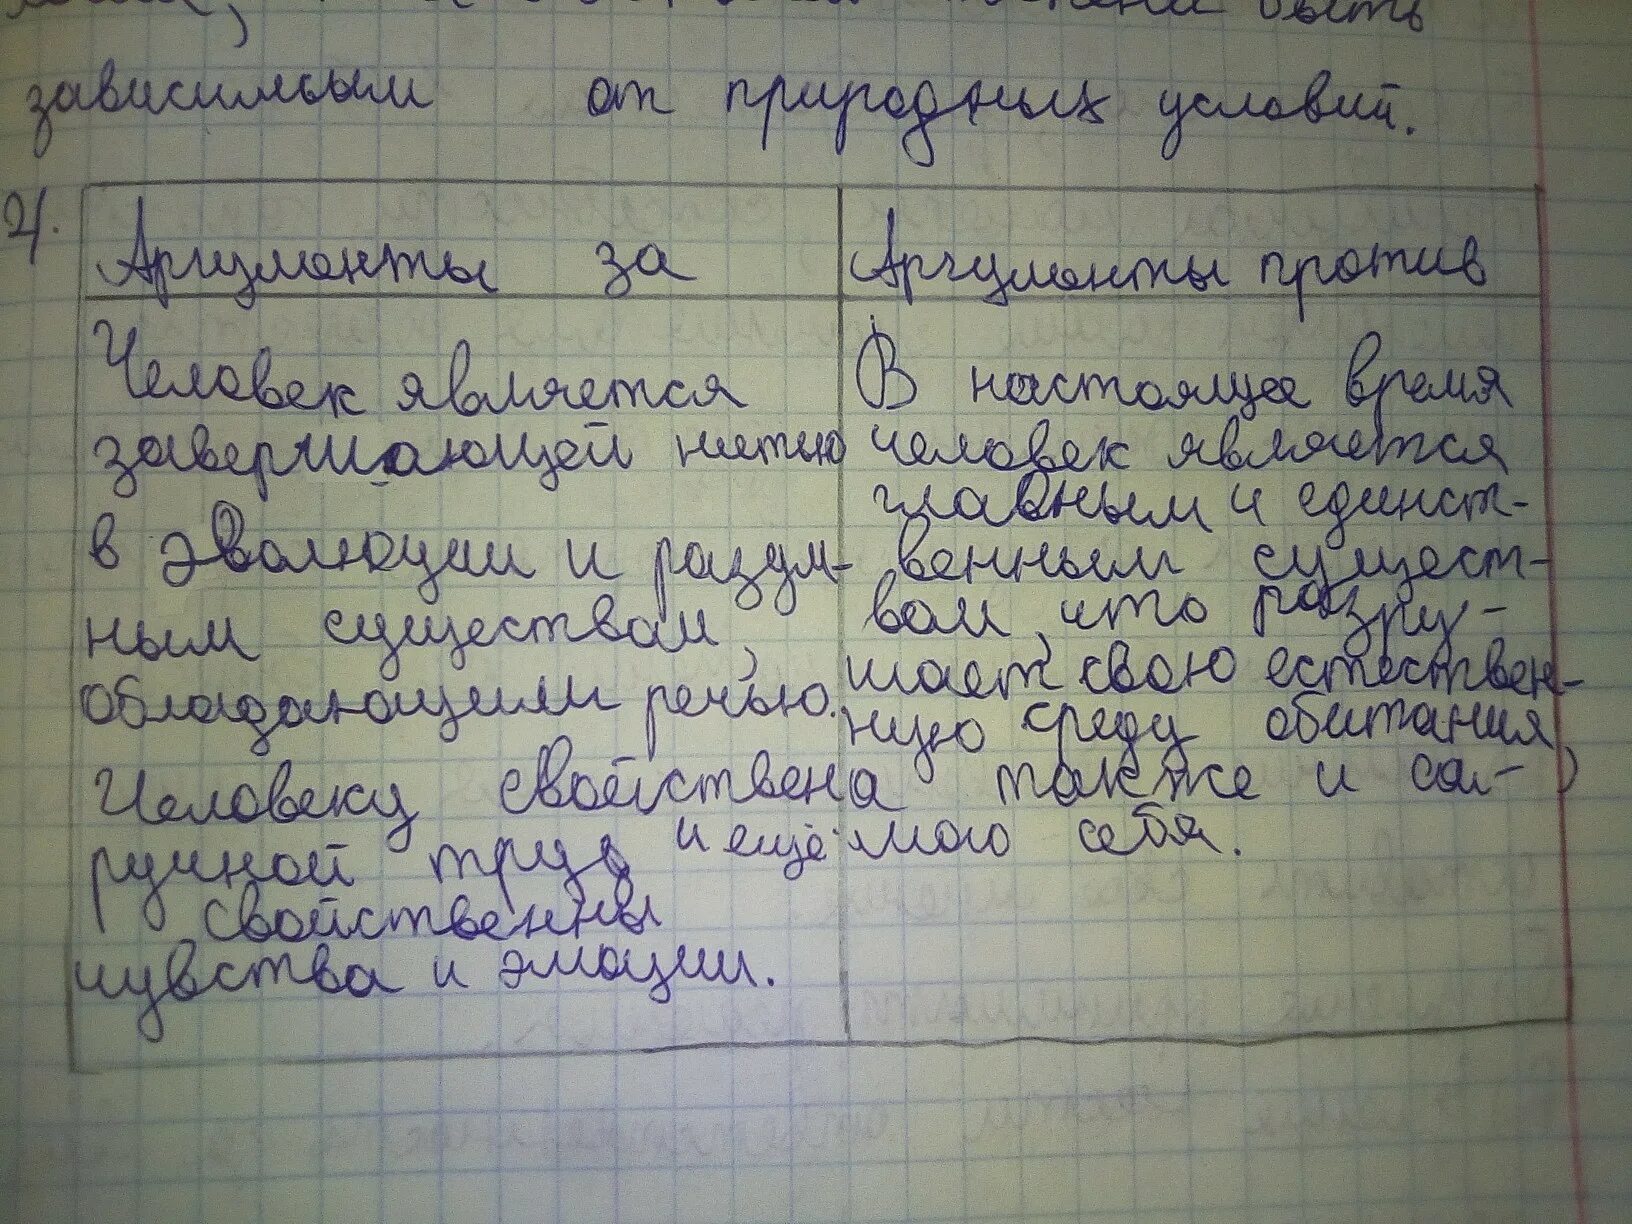 быть
зависимым от природных условий.
2.
Аргументы за
Аргументы против
Человек является
завершающей
в эволюции и разум-
ным существом,
обладающим речью.
Человеку свойствен
ручной труд и ещё
свойственны
чувства и эмоции.
В настоящее время
человек является
главным и единст-
венным сущест-
вом, что разру-
шает свою естествен-
ную среду обитания,
а также и са-
мого себя.